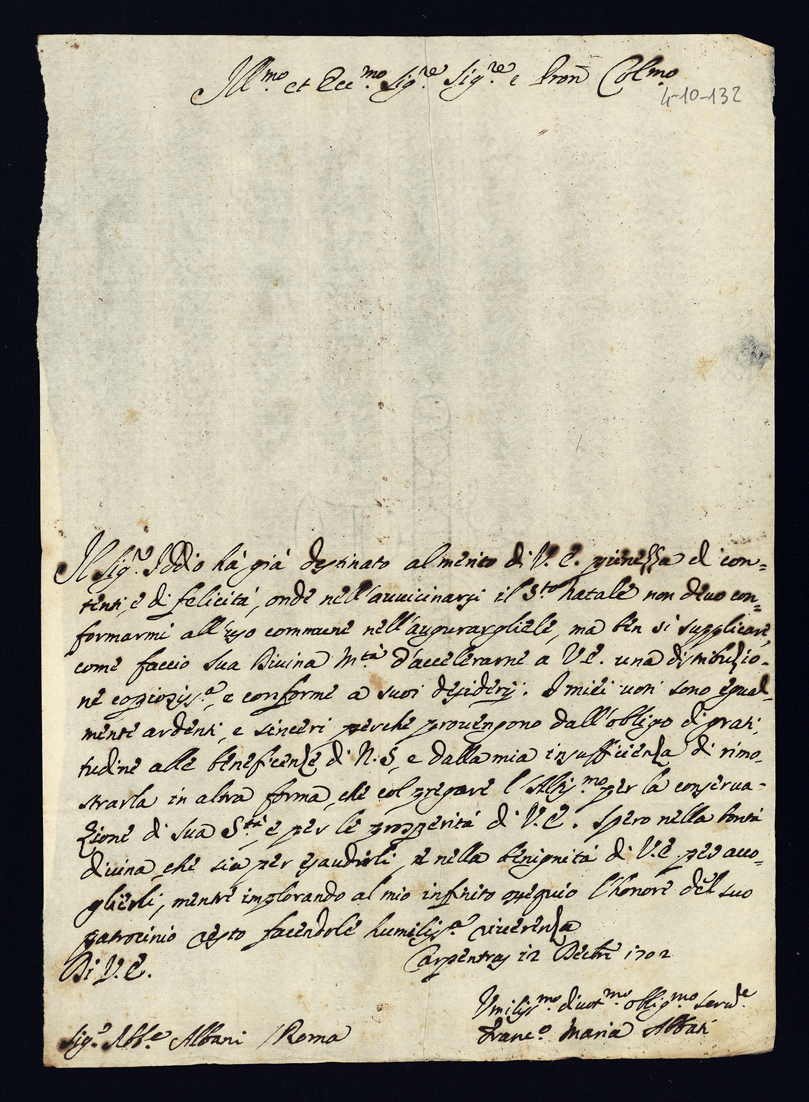 Ill.mo et Ecc.mo Sig.re Sig.re e Pron Col.mo
4-10-132
Il Sig.r Iddio hà già destinato al merito di V. E. pienezza di con=
tenti, e di felicità, onde nell'avvicinarsi il S.to Natale non devo con=
formarmi all'uso commune nell'augurargliele, ma ben sì supplicare,
come faccio Sua Divina M.tà d'accelerarne a V.E. una distribuzio=
ne copiosiss.a, e conforme a suoi desiderij. I miei voti sono egual=
mente ardenti, e sinceri perche provengono dall'obligo di grati,
tudine alle beneficenze di N. S., e dalla mia insufficienza di rimo=
strarla in altra forma, che col pregare l'Altiss.mo per la conserva=
zione di Sua S.tà, e per le prosperità di V. E. Spero nella bontà
divina che sia per esaudirli, e nella benignità di V.E. per acco=
glierli; mentre implorando al mio infinito ossequio l'honore del suo
patrocinio resto facendole humiliss.a riverenza
Di V. E.
Carpentras 12 Decbre 1702
Umiliss.mo divot.mo oblig.mo Serv.e
Sig.r Abb.e Albani Roma
Franc.o Maria Abbati